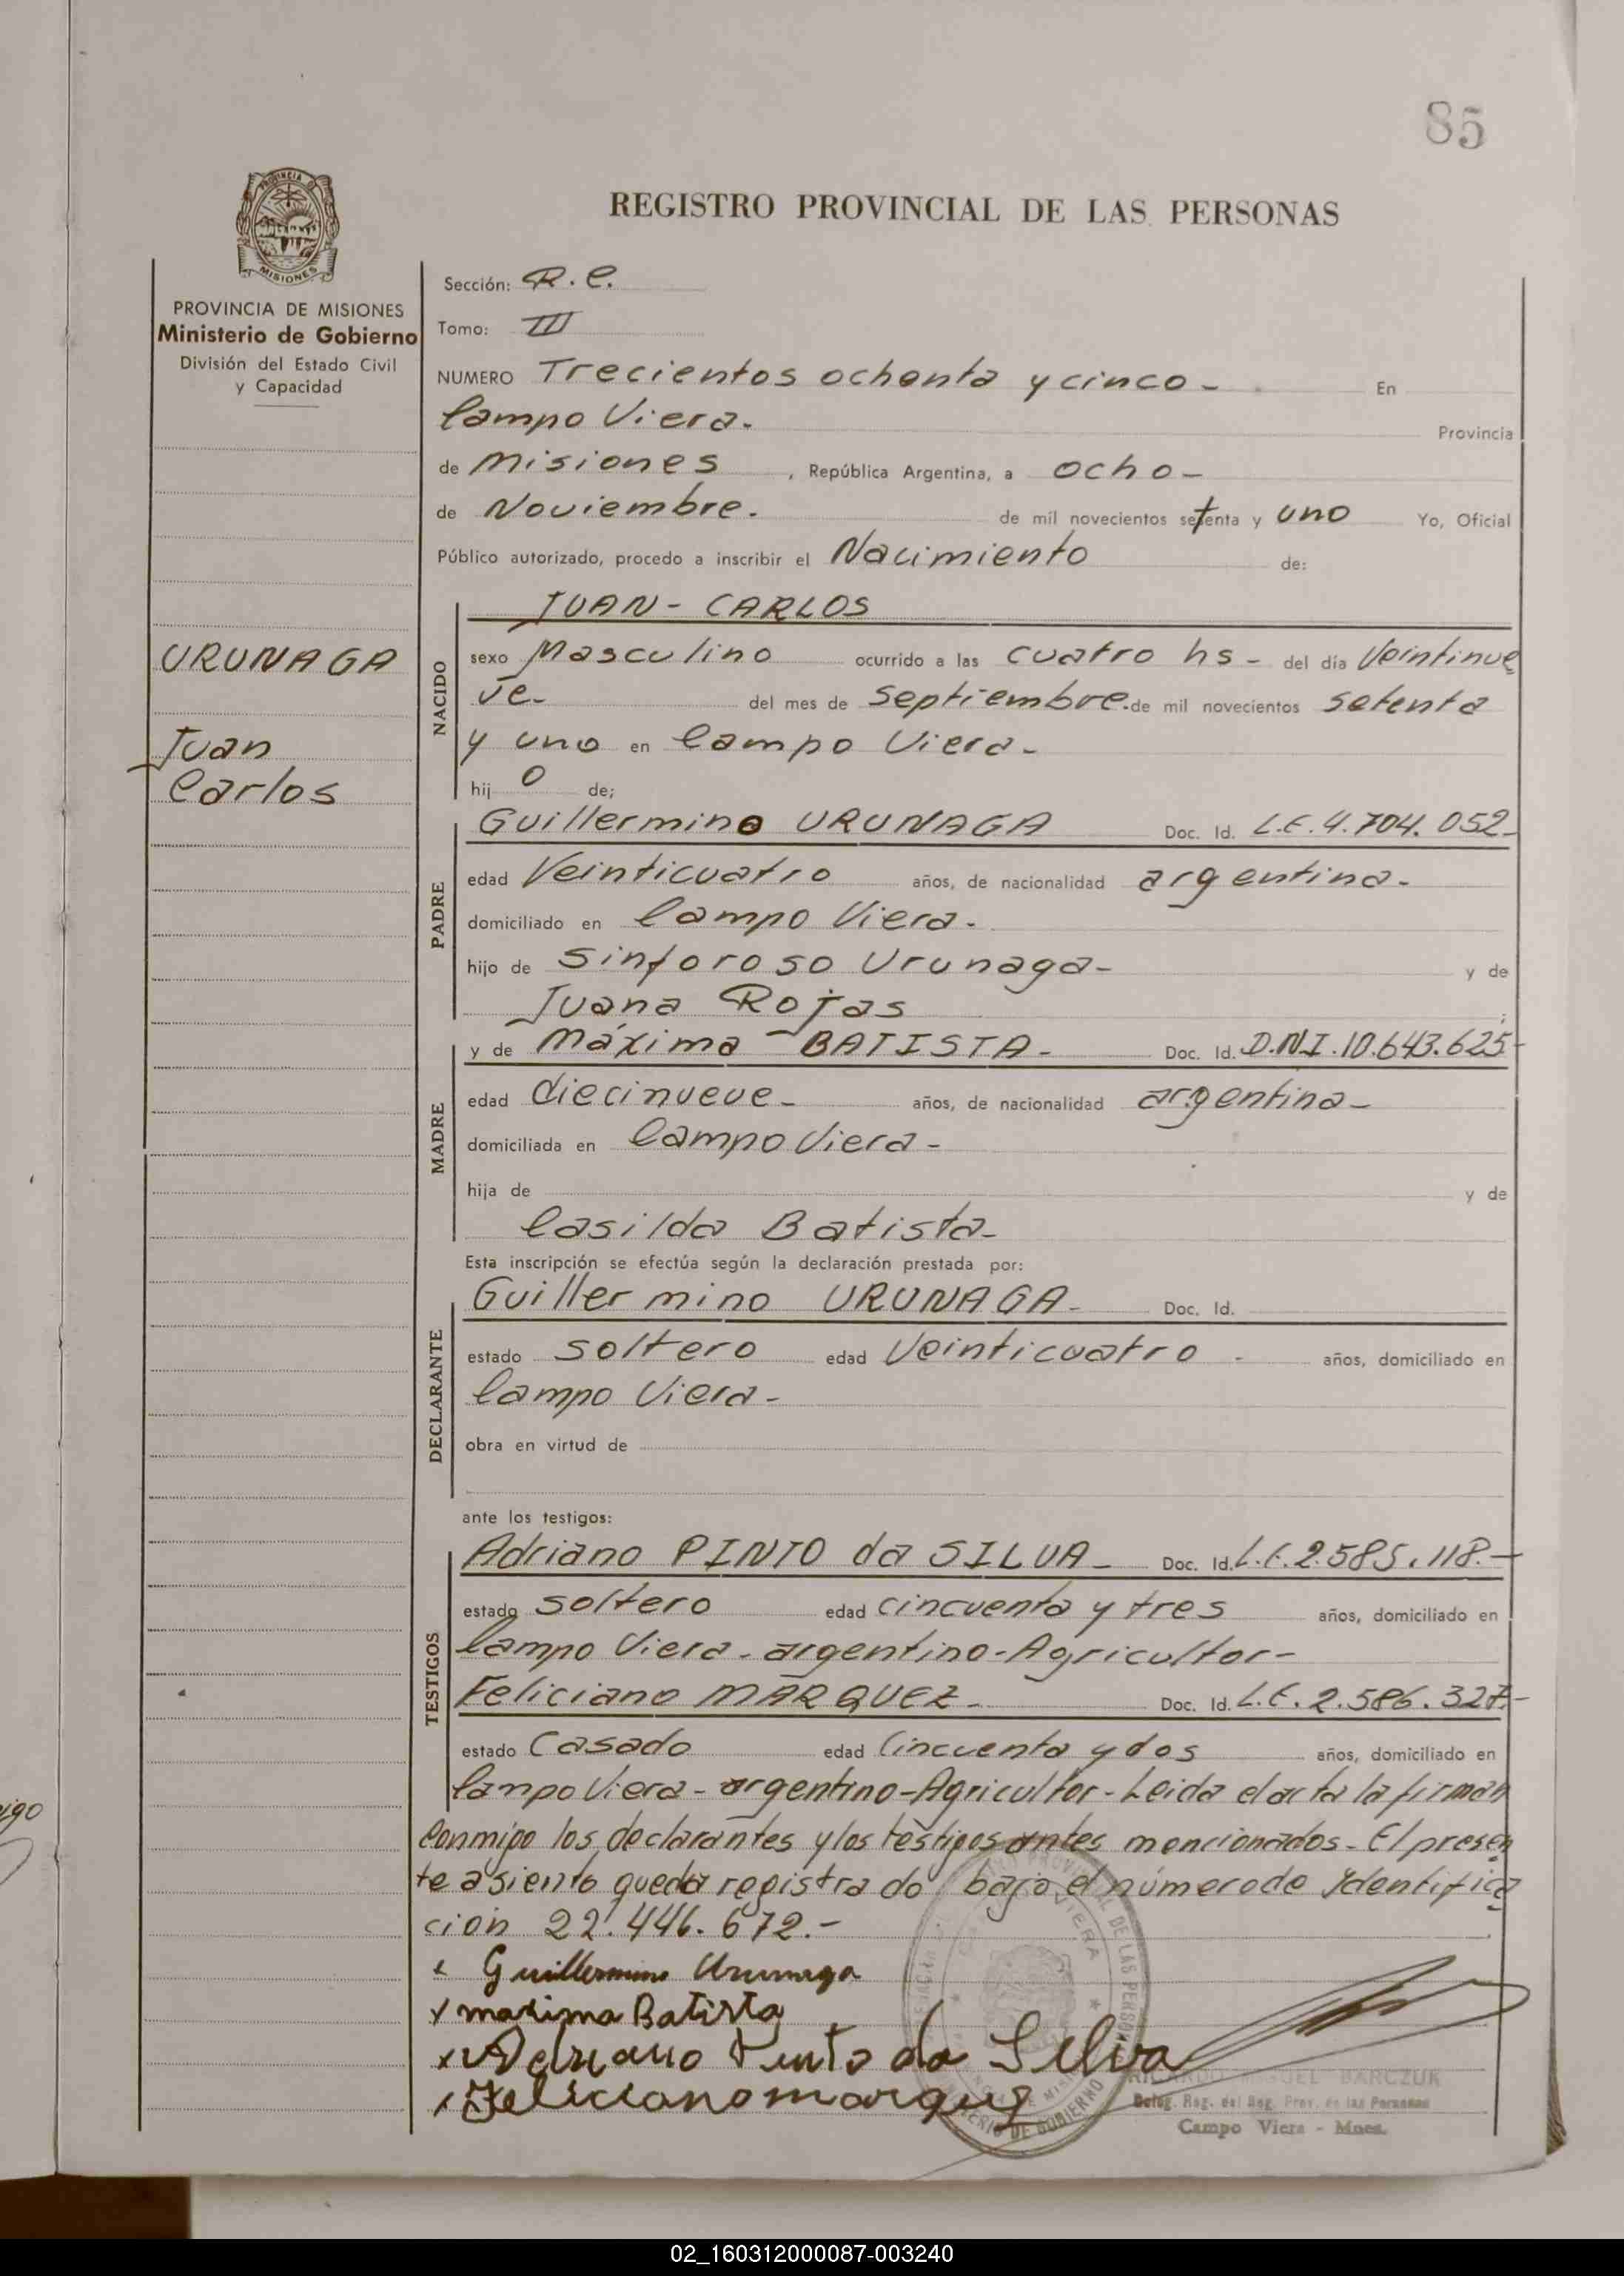 85
REGISTRO PROVINCIAL DE LAS PERSONAS
PROVINCIA DE MISIONES
Ministerio de Gobierno
División del Estado Civil
y Capacidad
URUNAGA
Juan
Carlos
Sección: R.C.
Tomo: III
NUMERO Trecientos ochenta y cinco - En
Campo Viera. Provincia
de Misiones, República Argentina, a ocho -
de Noviembre. de mil novecientos setenta y uno Yo, Oficial
Público autorizado, procedo a inscribir el Nacimiento de:
NACIDO
JUAN - CARLOS
sexo Masculino ocurrido a las cuatro hs - del día Veintinue
ve- del mes de Septiembre. de mil novecientos setenta
y uno en Campo Viera-
hij o de;
PADRE
Guillermino URUNAGA Doc. Id. L.E. 4.704.052-
edad Veinticuatro años, de nacionalidad argentina-
domiciliado en Campo Viera-
hijo de Sinforoso Urunaga- y de
Juana Rojas ;
MADRE
y de Máxima BATISTA- Doc. Id. D.N.I. 10.643.625-
edad diecinueve- años, de nacionalidad argentina-
domiciliada en Campo Viera-
hija de y de
Casilda Batista-
Esta inscripción se efectúa según la declaración prestada por:
DECLARANTE
Guillermino URUNAGA- Doc. Id.
estado soltero edad Veinticuatro - años, domiciliado en
Campo Viera-
obra en virtud de
ante los testigos:
TESTIGOS
Adriano PINTO da SILVA- Doc. Id. L.E. 2.585.118.-
estado soltero edad cincuenta y tres años, domiciliado en
Campo Viera - argentino - Agricultor-
Feliciano MARQUEZ- Doc. Id. L.E. 2.586.327.-
estado Casado edad Cincuenta y dos años, domiciliado en
Campo Viera - argentino - Agricultor - Leida el acta la firman
Conmigo los declarantes y los testigos antes mencionados - El presen
te asiento queda registrado bajo el número de Identifica
ción 22.446.672.-
x Guillermino Urunaga
x maxima Batista
x Adriano Pinto da Silva
x Feliciano marquez
RICARDO MIGUEL BARCZUK
Deleg. Reg. del Reg. Prov. de las Personas
Campo Viera - Mnes.
02_160312000087-003240